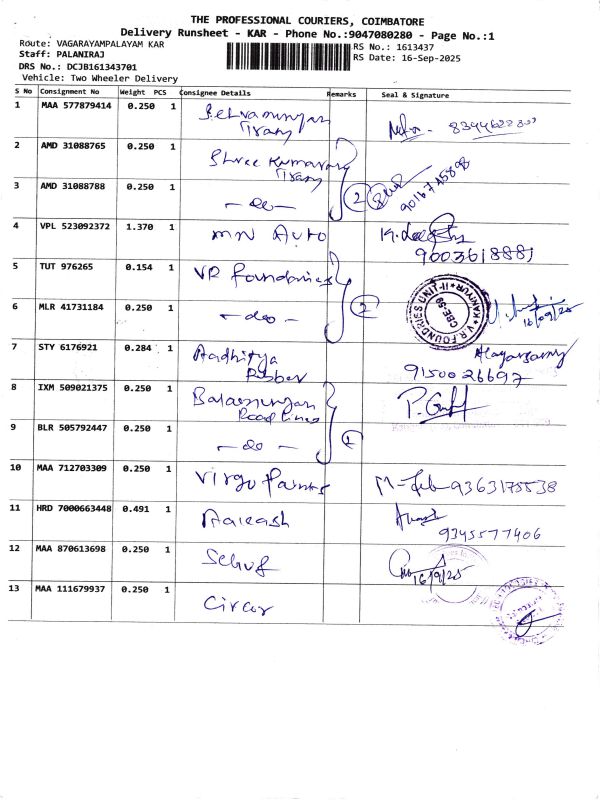 THE PROFESSIONAL COURIERS, COIMBATORE
Delivery Runsheet - KAR - Phone No.:9047080280 - Page No.:1
Route: VAGARAYAMPALAYAM KAR
RS No.: 1613437
Staff: PALANIRAJ
RS Date: 16-Sep-2025
DRS No.: DCJB161343701
Vehicle: Two Wheeler Delivery
S No Consignment No Weight PCS Consignee Details Remarks Seal & Signature
1 MAA 577879414 0.250 1
2 AMD 31088765 0.250 1 Shree Kumaran
3 AMD 31088788 0.250 1 - do - 2 9016745898
4 VPL 523092372 1.370 1 MN Auto 9003618881
5 TUT 976265 0.154 1 VR Foundries
V.R.FOUNDRIES UNIT-II KANIYUR CBE-59
6 MLR 41731184 0.250 1 - do - 2 16/09/25
7 STY 6176921 0.284 1 Aadhitya Rubber Alagarsamy 9150026697
8 IXM 509021375 0.250 1 Road Lines
9 BLR 505792447 0.250 1 - do -
10 MAA 712703309 0.250 1 Virgo Paints 9363175538
11 HRD 7000663448 0.491 1 Aakash 9345577406
12 MAA 870613698 0.250 1 16/9/25
13 MAA 111679937 0.250 1 Circor